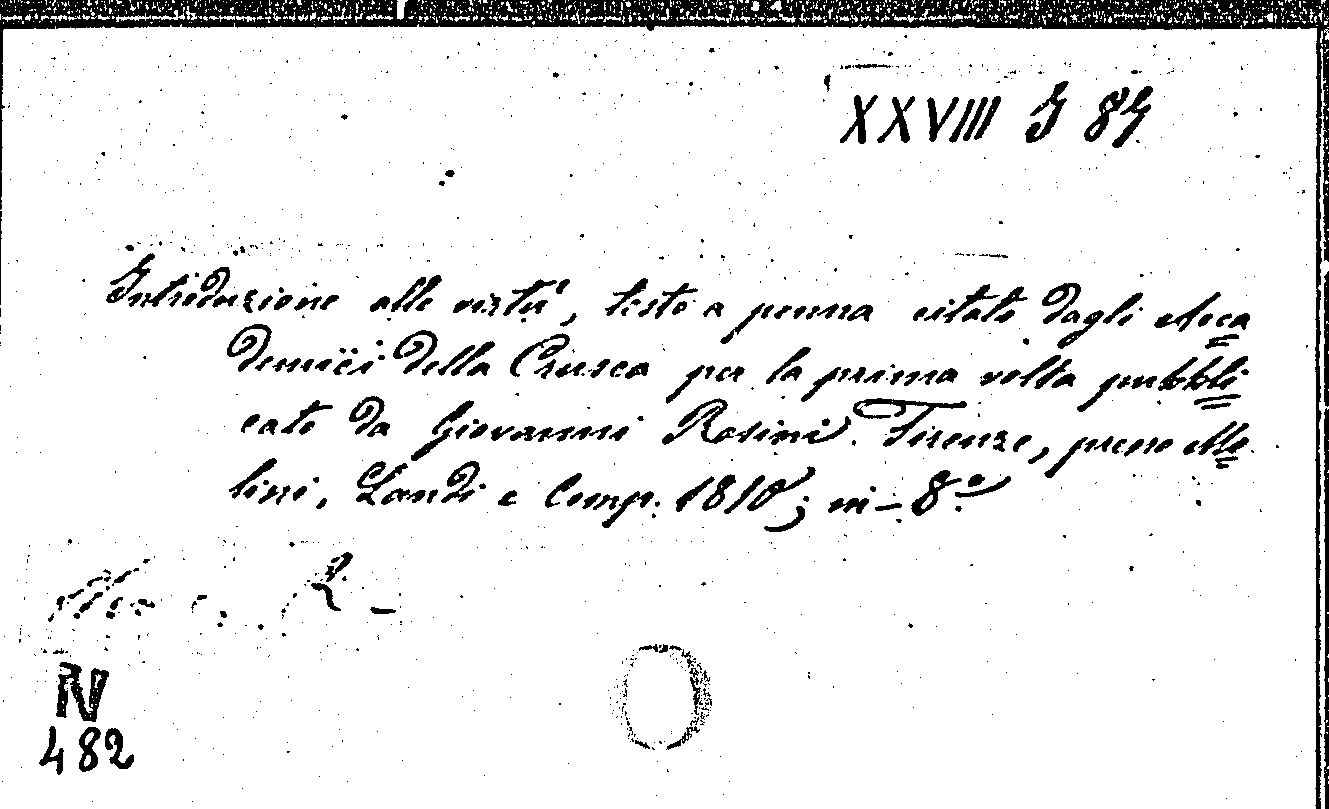 XXVIII G 84
Introduzione alle virtu', testo a penna citato dagli Acca
demici della Crusca per la prima volta pubbli
cato da Giovanni Rosini. Firenze, presso Mo
lini, Landi e Comp. 1810; in-8°
N
482